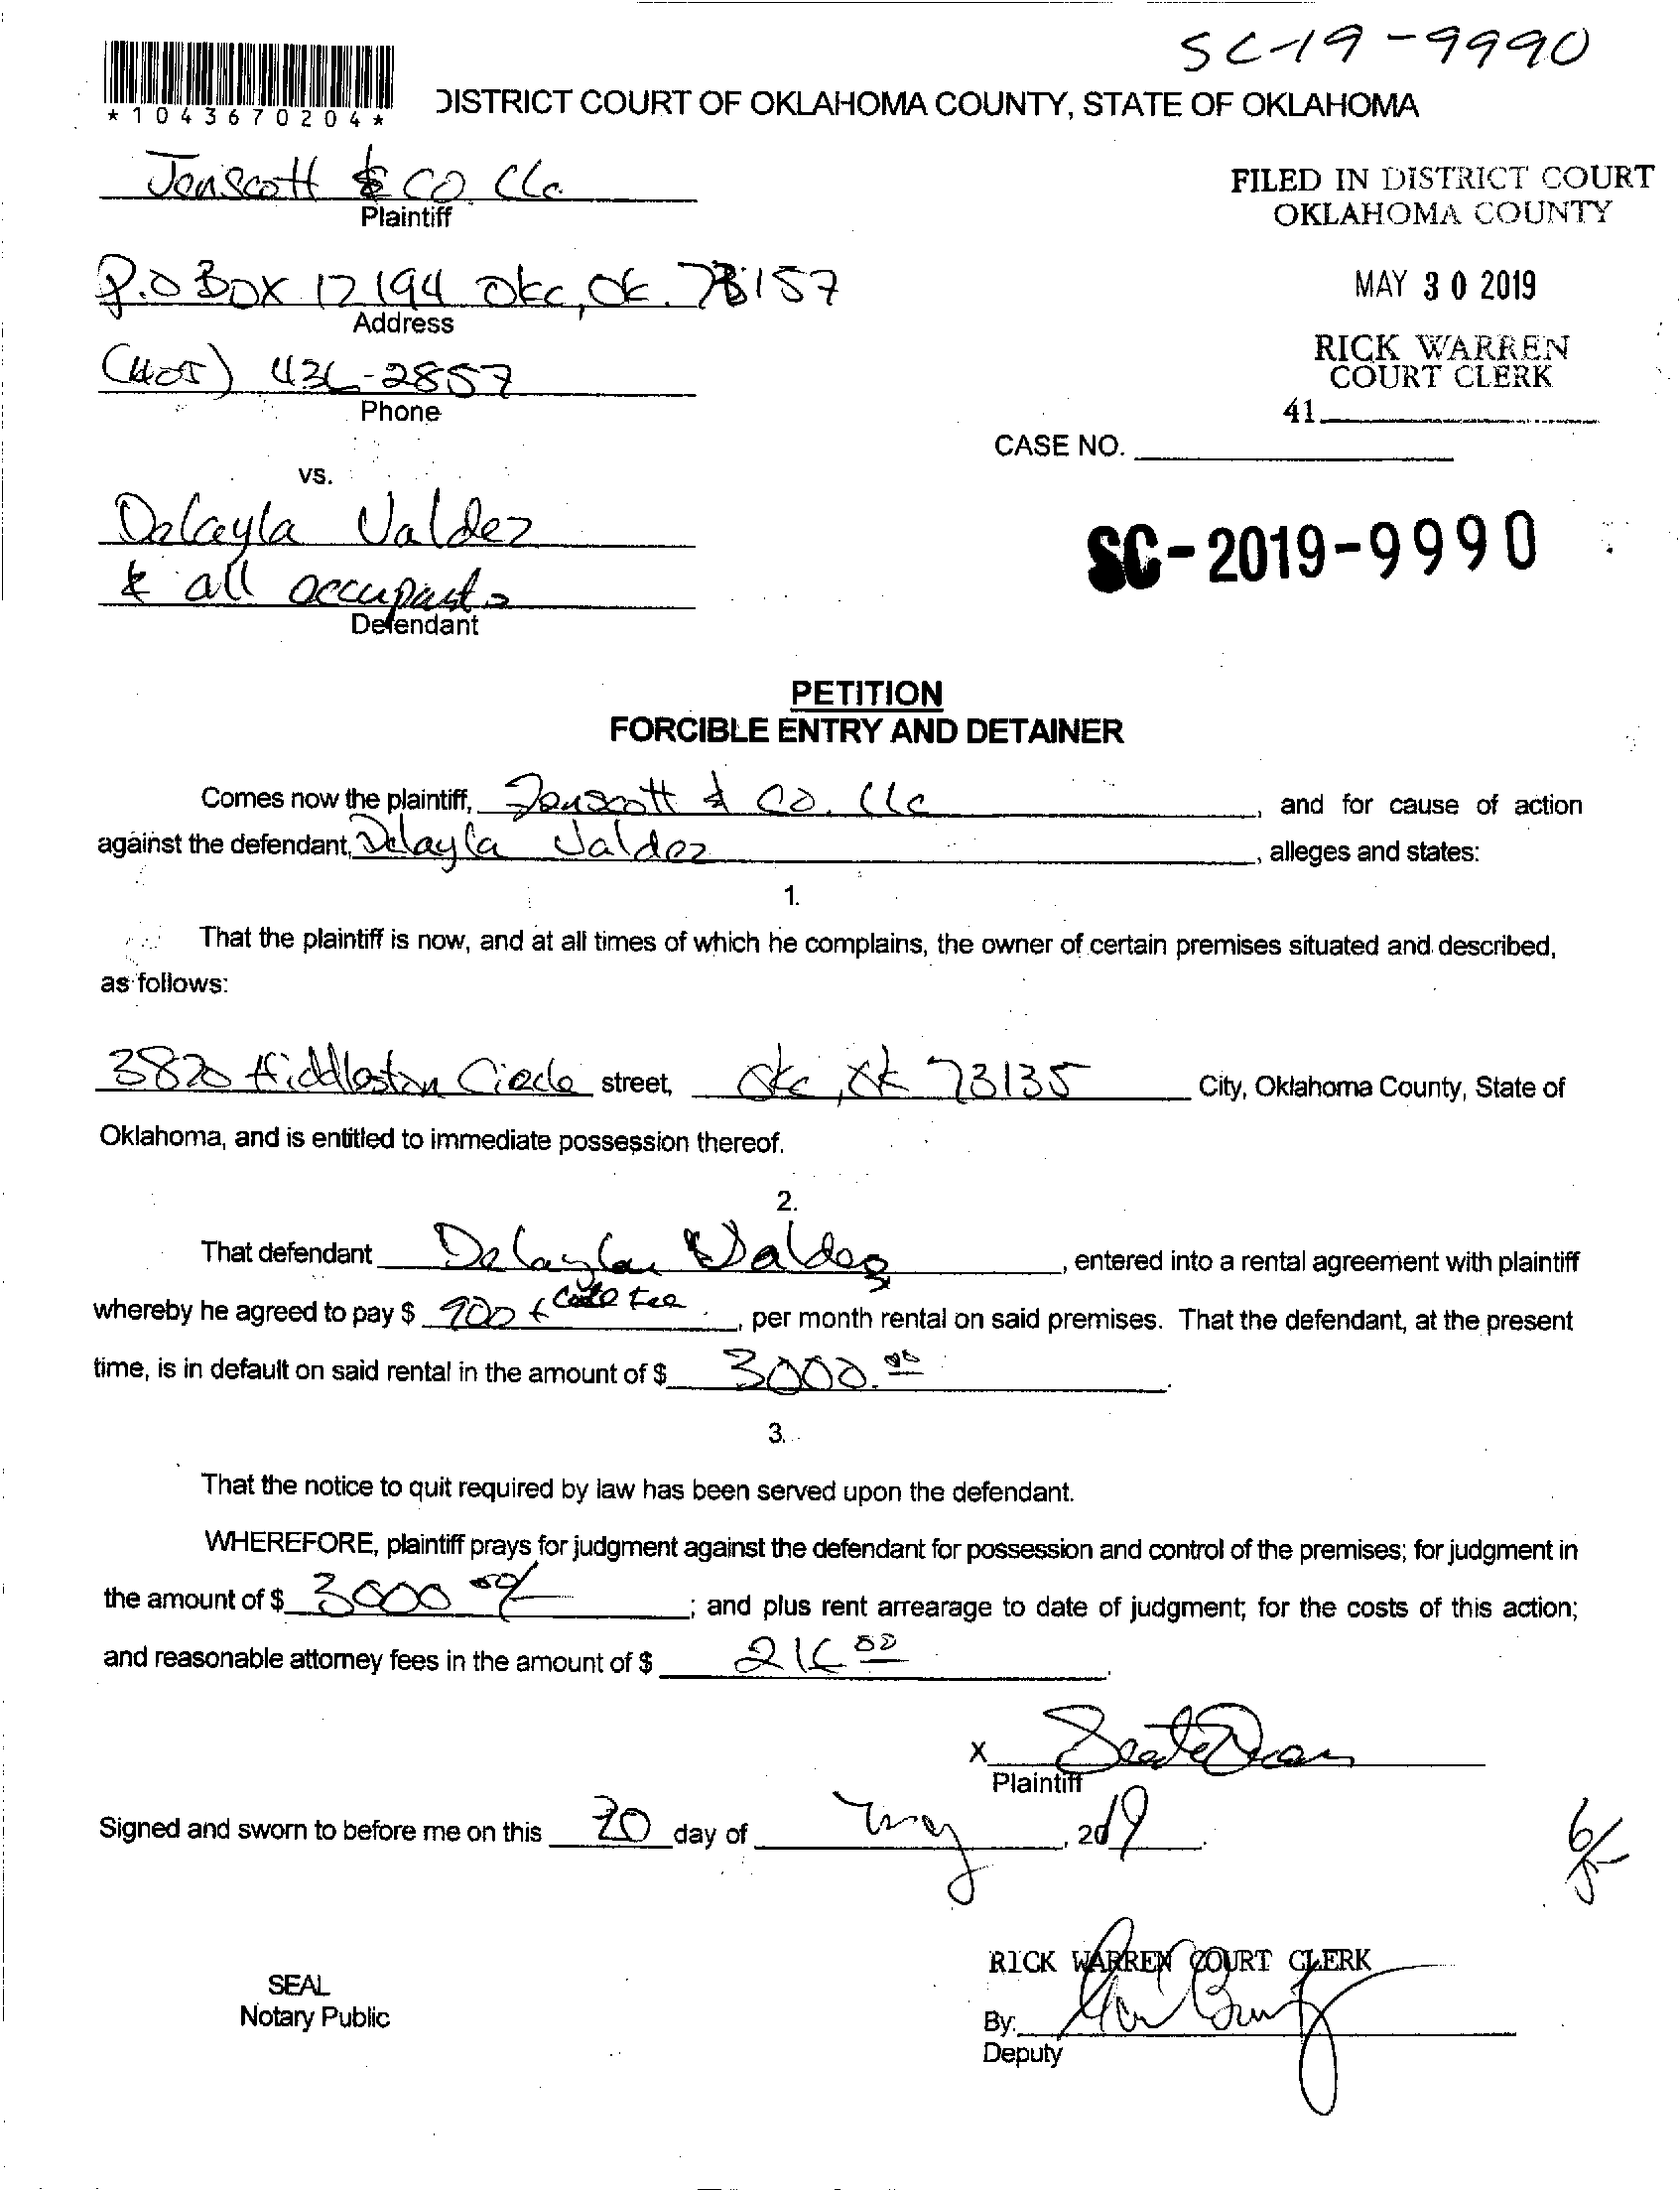 SC-19-9990
*1043670204*
DISTRICT COURT OF OKLAHOMA COUNTY, STATE OF OKLAHOMA
Jenscott & CO. LLc
Plaintiff
FILED IN DISTRICT COURT
OKLAHOMA COUNTY
P.O BOX 12194 Okc, Ok. 73157
Address
MAY 30 2019
(405) 436-2857
Phone
RICK WARREN
COURT CLERK
41
CASE NO.
vs.
Delayla Valdez
& all occupants
Defendant
SC-2019-9990
PETITION
FORCIBLE ENTRY AND DETAINER
Comes now the plaintiff, Jenscott & CO. LLc, and for cause of action
against the defendant, Delayla Valdez, alleges and states:
1.
That the plaintiff is now, and at all times of which he complains, the owner of certain premises situated and described,
as follows:
3820 Hiddleston Circle street, Okc, Ok 73135 City, Oklahoma County, State of
Oklahoma, and is entitled to immediate possession thereof.
2.
That defendant Delayla Valdez, entered into a rental agreement with plaintiff
whereby he agreed to pay $ 900 + late fee, per month rental on said premises. That the defendant, at the present
time, is in default on said rental in the amount of $ 3000.00.
3.
That the notice to quit required by law has been served upon the defendant.
WHEREFORE, plaintiff prays for judgment against the defendant for possession and control of the premises; for judgment in
the amount of $ 3000 00/; and plus rent arrearage to date of judgment; for the costs of this action;
and reasonable attorney fees in the amount of $ 216 00.
X
Plaintiff
Signed and sworn to before me on this 30 day of May, 2019.
6/5
RICK WARREN COURT CLERK
SEAL
Notary Public
By:
Deputy